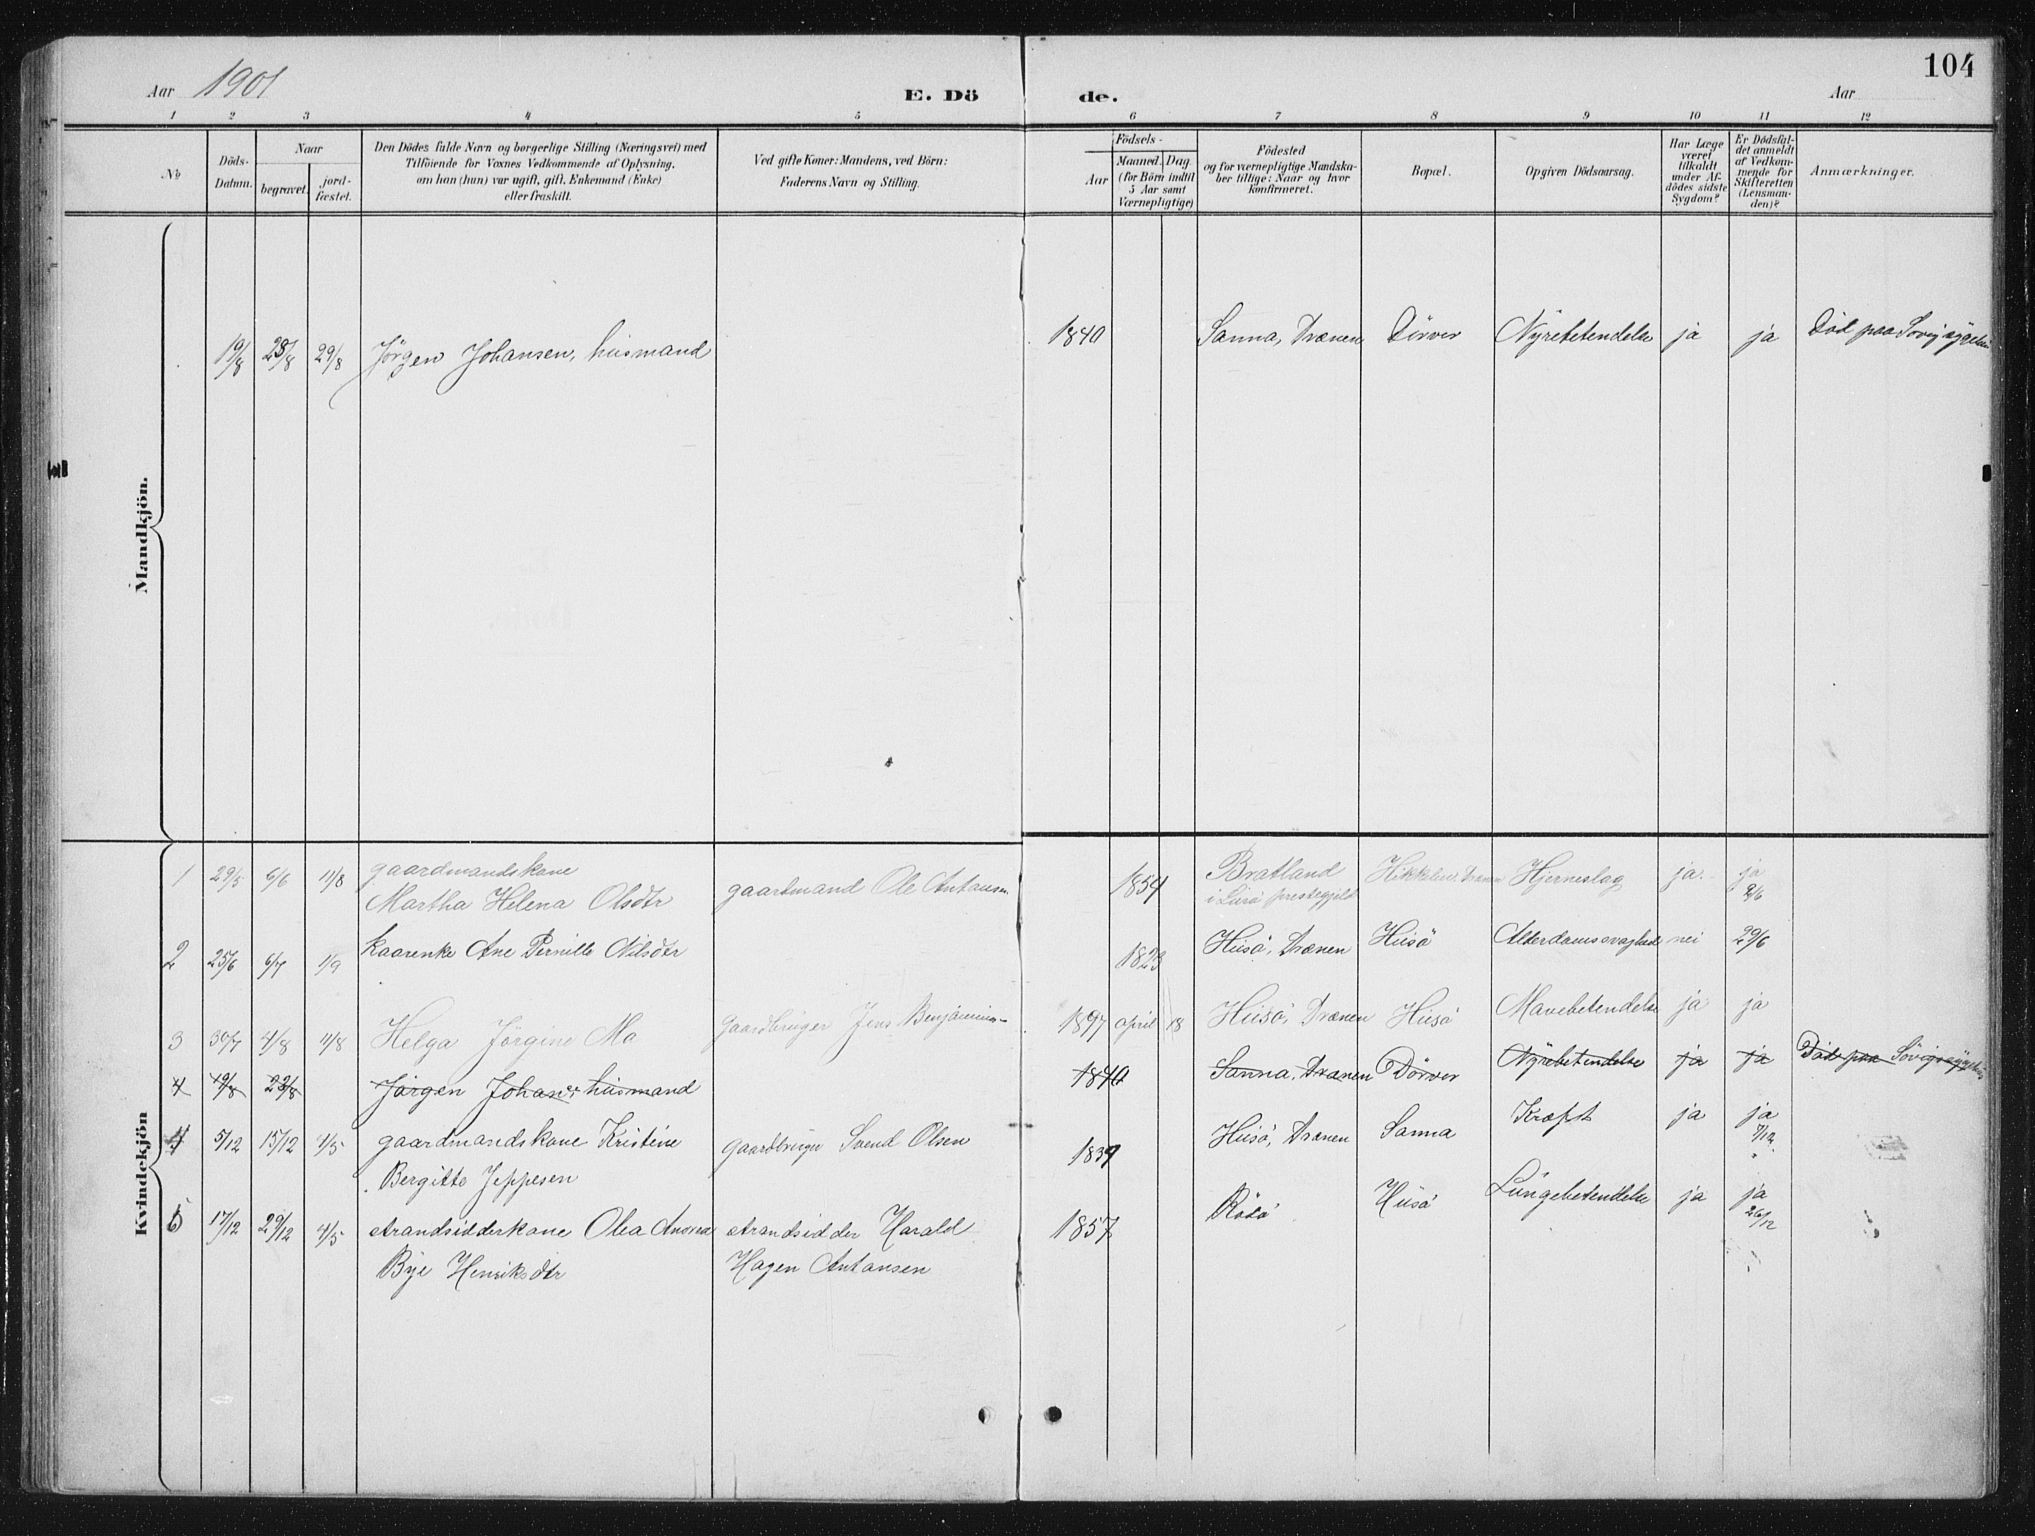 104
Aar 1901
E. Dö de.
Aar
1 2 3 4 5 6 7 8 9 10 11 12
No
Döds-Datum.
Naar
begravet.
jord-fæstet.
Den Dödes fulde Navn og borgerlige Stilling (Næringsvei) med
Tilföiende for Voxnes Vedkommende af Oplysning,
om han (hun) var ugift, gift, Enkemand (Enke)
eller fraskilt.
Ved gifte Koner: Mandens, ved Börn:
Faderens Navn og Stilling.
Födsels-
Aar
Maaned. Dag.
(for Börn indtil
5 Aar samt
Værnepligtige)
Födested
og for værnepligtige Mandska-
ber tillige: Naar og hvor
konfirmeret.
Bopæl.
Opgiven Dödsaarsag.
Har Læge
været
tilkaldt
under Af-
dödes sidste
Sygdom?
Er Dödsfal-
det anmeldt
af Vedkom-
mende for
Skifteretten
(Lensman-
den)?
Anmærkninger.
Mandkjön.
19/8 28/8 29/8 Jörgen Johansen, husmand 1840 Sanna, Trænen Dörver Nyrebetendelse ja ja Död paa Sövig sygehus
Kvindekjön
1 29/5 6/6 11/8 gaardmandskone
Martha Helena Olsdtr gaardmand Ole Antonsen 1854 Bratland
i Lurö prestegjeld Trænen Hjerneslag ja ja
8/6
2 25/6 6/7 1/9 kaarenke Ane Pernille Nilsdtr 1823 Husö, Trænen Husö Alderdomssvaghed nei 29/6
3 30/7 4/8 11/8 Helga Jörgine Mo gaardbruger Jens Benjamins- 1897 april 18 Husö, Trænen Husö Mavebetendelse ja ja
4 19/8 28/8 Jörgen Johans. husmand 1840 Sanna, Trænen Dörver Nyrebetendelse ja ja Död paa Sövig sygehus
4 5/12 15/12 4/5 gaardmandskone Kristine
Bergitte Jeppesen gaardbruger Svend Olsen 1839 Husö, Trænen Sanna Kræft ja ja
7/12
5 17/12 29/12 4/5 strandsidderkone Olea Anna
Bye Henriksdtr strandsidder Harald
Hagen Antonsen 1857 Rödö Husö Lungebetendelse ja ja
26/12